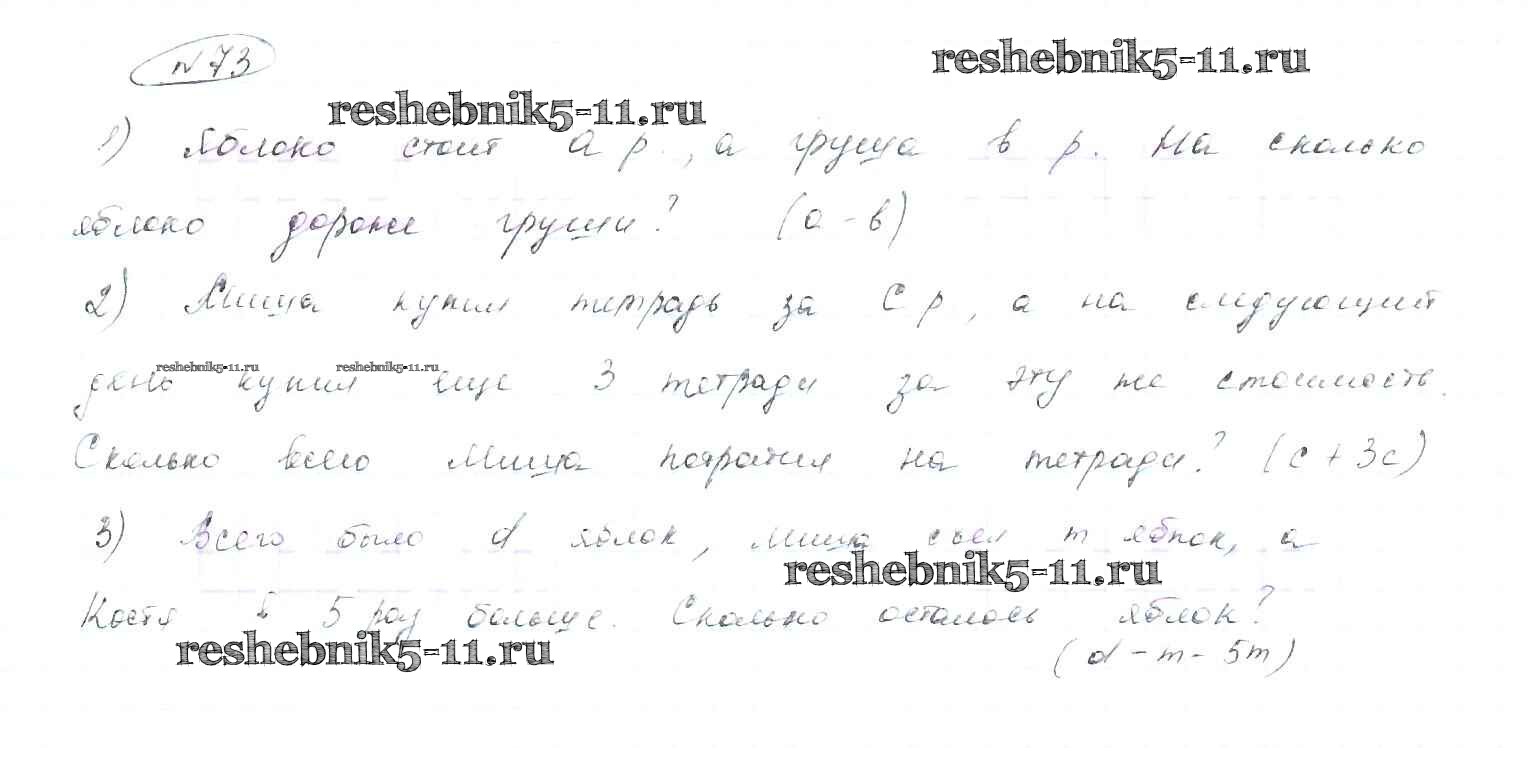 №73
reshebnik5-11.ru
reshebnik5-11.ru
1) Яблоко стоит а р., а груша в р. На сколько
яблоко дороже груши? (а - в)
2) Миша купил тетрадь за с р, а на следующий
reshebnik5-11.ru reshebnik5-11.ru
день купил еще 3 тетради за эту же стоимость.
Сколько всего Миша потратил на тетради? (с + 3с)
3) Всего было d яблок, Миша съел m яблок, а
reshebnik5-11.ru
Костя в 5 раз больше. Сколько осталось яблок?
reshebnik5-11.ru
(d - m - 5m)